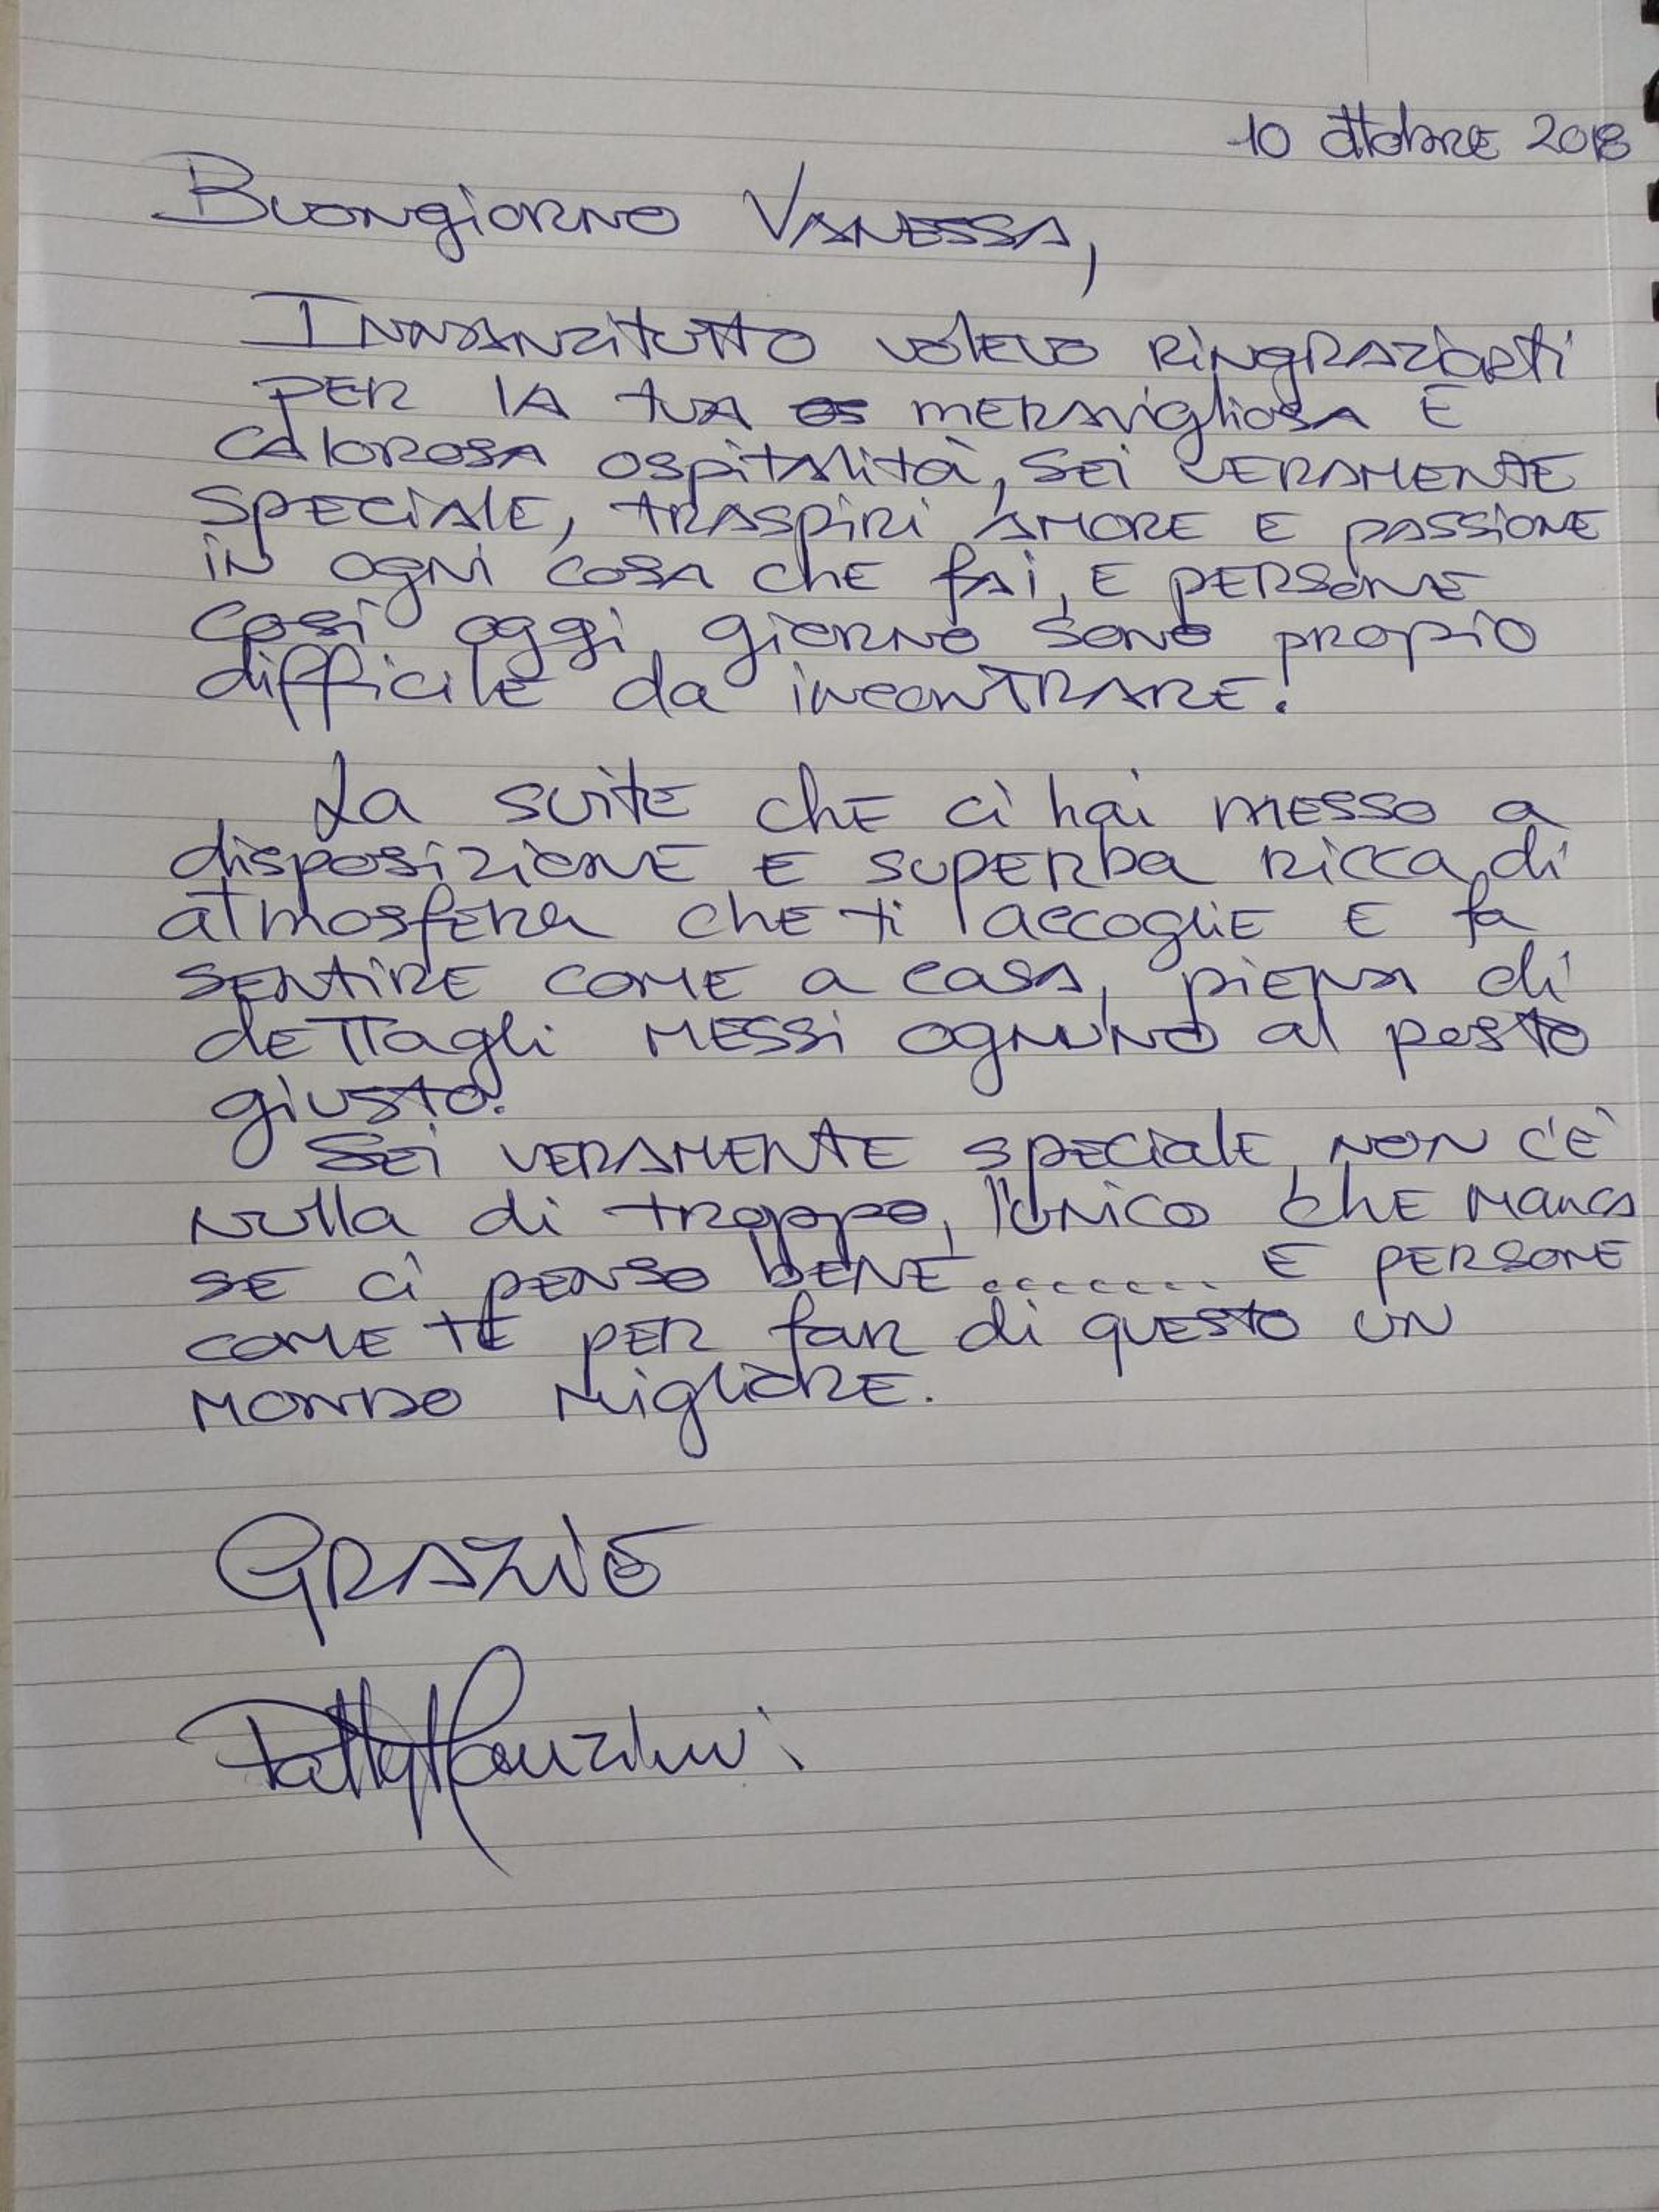 10 ottobre 2018
Buongiorno Vanessa,
Innanzitutto volevo ringraziarti
per la tua os meravigliosa e
calorosa ospitalità, sei veramente
speciale, traspiri amore e passione
in ogni cosa che fai, e persone
così oggi giorno sono propio
difficile da incontrare!
La suite che ci hai messo a
disposizione e superba ricca di
atmosfera che ti accoglie e fa
sentire come a casa, piena di
dettagli messi ognuno al posto
giusto.
Sei veramente speciale, non c'è
nulla di troppo, l'unico che manca
se ci penso bene........ e persone
come te per far di questo un
mondo migliore.
Grazie
Patty